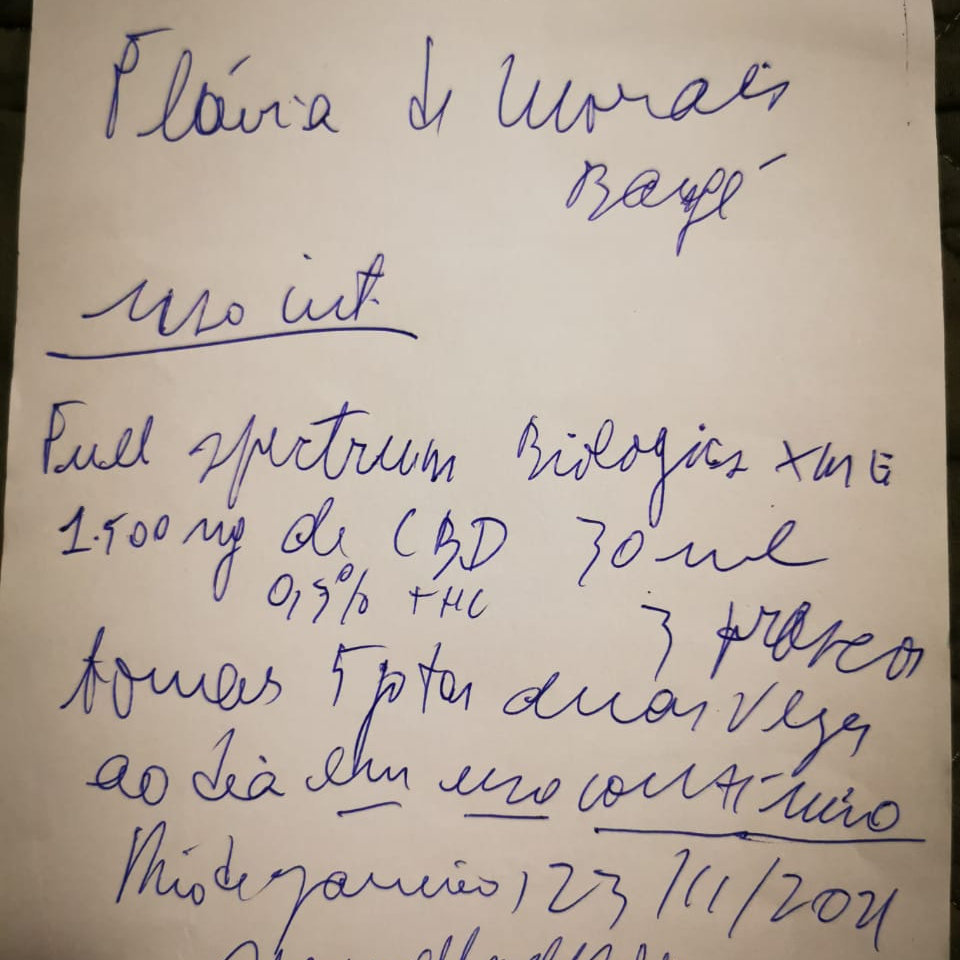 Flávia de Morais
uso int.
Full spectrum Biologics XMG
1.500 mg de CBD 30 ml
0,3% THC
3 frascos
tomar 5 gotas duas vezes
ao dia em uso contínuo
Rio de janeiro, 23/11/2021